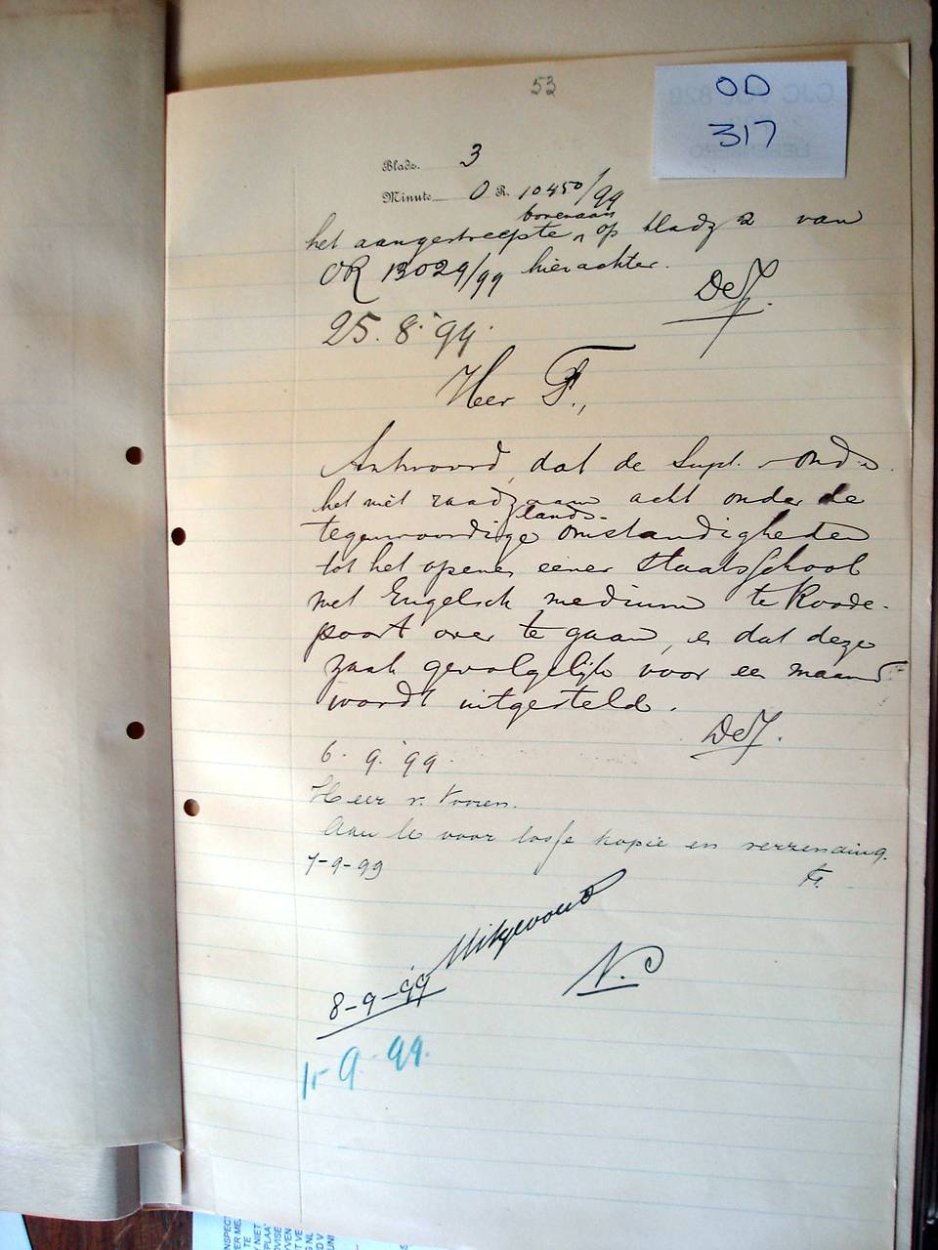 53
OD
317
Bladz. 3
Minute O R. 10450/99
bovenaan
het aangestreepte ^ op bladz 2 van
OR 13029/99 hierachter.
DeJ.
25.8.99.
Heer F.,
Antwoord, dat de Supt. v. Ond.
het niet raadzaam acht onder de
lands-
tegenwoordige omstandigheden
tot het openen eener staatsschool
met Engelsch medium te Roode-
poort over te gaan, en dat deze
zaak gevolgelijk voor een maand
wordt uitgesteld.
DeJ.
6.9.99.
Heer v.
Aan U voor losse kopie en verzending.
7-9-99
F.
Uitgevoerd
8-9-99
N.
9.99.